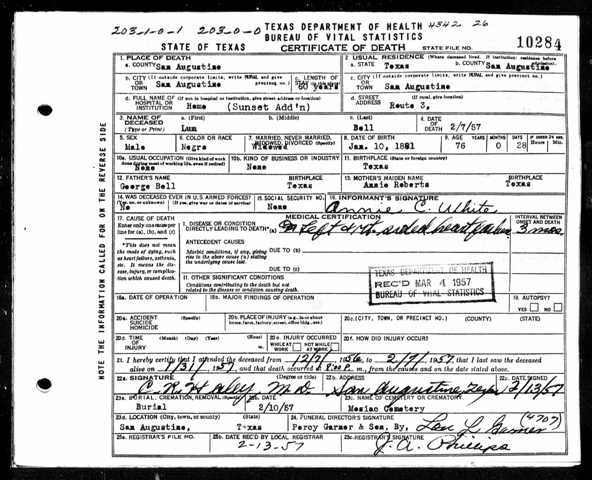 203-1-0-1 203-0-0 TEXAS DEPARTMENT OF HEALTH 4342 26
BUREAU OF VITAL STATISTICS
STATE OF TEXAS CERTIFICATE OF DEATH STATE FILE NO. 10284
1. PLACE OF DEATH 2. USUAL RESIDENCE (Where deceased lived. If institution: residence before
a. COUNTY San Augustine a. STATE Texas b. COUNTY San Augustine
b. CITY (If outside corporate limits, write RURAL and give precinct no.) c. LENGTH OF STAY c. CITY (If outside corporate limits, write RURAL and give precinct no.)
OR TOWN San Augustine 60 years OR TOWN San Augustine
d. FULL NAME OF (If not in hospital or institution, give street address or location) d. STREET ADDRESS (If rural, give location)
HOSPITAL OR INSTITUTION Home (Sunset Add'n) Route 3,
3. NAME OF DECEASED a. (First) b. (Middle) c. (Last) 4. DATE OF DEATH
(Type or Print) Lum Bell 2/7/57
5. SEX 6. COLOR OR RACE 7. MARRIED, NEVER MARRIED, WIDOWED, DIVORCED (Specify) 8. DATE OF BIRTH 9. AGE YEARS MONTHS DAYS If under 24 hrs. Hours Min.
Male Negro Widowed Jan. 10, 1881 76 0 28
10a. USUAL OCCUPATION (Give kind of work done during most of working life, even if retired) 10b. KIND OF BUSINESS OR INDUSTRY 11. BIRTHPLACE (State or foreign country)
None None Texas
12. FATHER'S NAME BIRTHPLACE 13. MOTHER'S MAIDEN NAME BIRTHPLACE
George Bell Texas Annie Roberts Texas
14. WAS DECEASED EVER IN U.S. ARMED FORCES? 15. SOCIAL SECURITY NO. 16. INFORMANT'S SIGNATURE
(Yes, no, or unknown) (If yes, give war or dates of service)
No None Annie C. White
17. CAUSE OF DEATH MEDICAL CERTIFICATION INTERVAL BETWEEN ONSET AND DEATH
Enter only one cause per line for (a), (b), and (c) 1. DISEASE OR CONDITION DIRECTLY LEADING TO DEATH* (a) Left sided heart failure 3 mos
*This does not mean the mode of dying, such as heart failure, asthenia, etc. It means the disease, injury, or complication which caused death.
ANTECEDENT CAUSES
Morbid conditions, if any, giving rise to the above cause (a) stating the underlying cause last. DUE TO (b)
DUE TO (c)
11. OTHER SIGNIFICANT CONDITIONS
Conditions contributing to the death but not related to the disease or condition causing death.
TEXAS DEPARTMENT OF HEALTH
REC'D MAR 4 1957
BUREAU OF VITAL STATISTICS
18a. DATE OF OPERATION 18b. MAJOR FINDINGS OF OPERATION 19. AUTOPSY
YES NO
20a. ACCIDENT SUICIDE HOMICIDE (Specify) 20b. PLACE OF INJURY (e.g., in or about home, farm, factory, street, office bldg., etc.) 20c. (CITY, TOWN, OR PRECINCT NO.) (COUNTY) (STATE)
20d. TIME OF INJURY (Month) (Day) (Year) (Hour) m. 20e. INJURY OCCURRED WHILE AT WORK NOT WHILE AT WORK 20f. HOW DID INJURY OCCUR?
21. I hereby certify that I attended the deceased from 12/7/, 1956, to 2/7/, 1957, that I last saw the deceased
alive on 1/31/, 1957, and that death occurred at P. m., from the causes and on the date stated above.
22a. SIGNATURE (Degree or title) 22b. ADDRESS 22c. DATE SIGNED
C. R. Haley M.D. San Augustine, Texas 2/13/57
23a. BURIAL, CREMATION, REMOVAL (Specify) 23b. DATE 23c. NAME OF CEMETERY OR CREMATORY
Burial 2/10/57 Mesiao Cemetery
23d. LOCATION (City, town, or county) (State) 24. FUNERAL DIRECTOR'S SIGNATURE
San Augustine, Texas Percy Garner & Son, By, Leo L. Garner (4707)
25a. REGISTRAR'S FILE NO. 25b. DATE REC'D BY LOCAL REGISTRAR 25c. REGISTRAR'S SIGNATURE
2-13-57 J. A. Phillips
NOTE THE INFORMATION CALLED FOR ON THE REVERSE SIDE